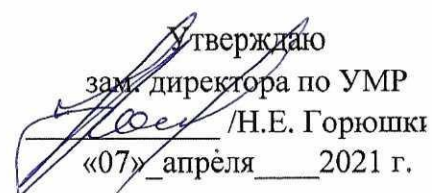 Утверждаю
зам. директора по УМР
/Н.Е. Горюшк
«07»_апреля____2021 г.